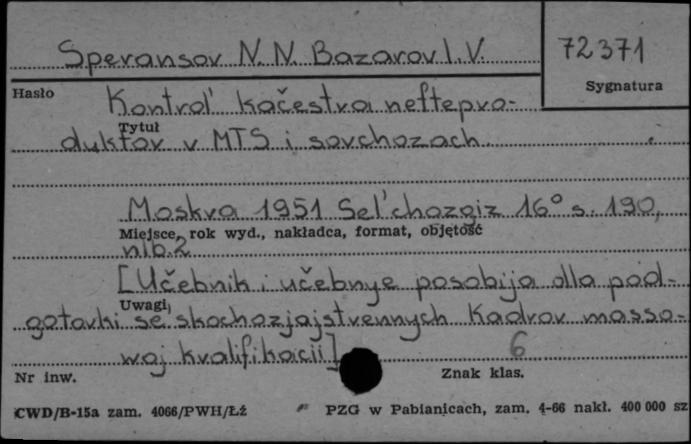 Speransov N. N. Bazarov I. V.
72371
Sygnatura
Hasło
Kontrol' kačestva neftepro-
Tytuł
duktov v MTS i sovchozach.
Moskva 1951 Sel'chozgiz 16° s. 190,
Miejsce, rok wyd., nakładca, format, objętość
nlb. 2
[Učebnik i učebnye posobija dlja pod-
Uwagi
gotovki selskochozjajstvennych kadrov masso-
woj kvalifikacii]
6
Nr inw.
Znak klas.
CWD/B-15a zam. 4066/PWH/Łź
PZG w Pabianicach, zam. 4-66 nakł. 400 000 sz